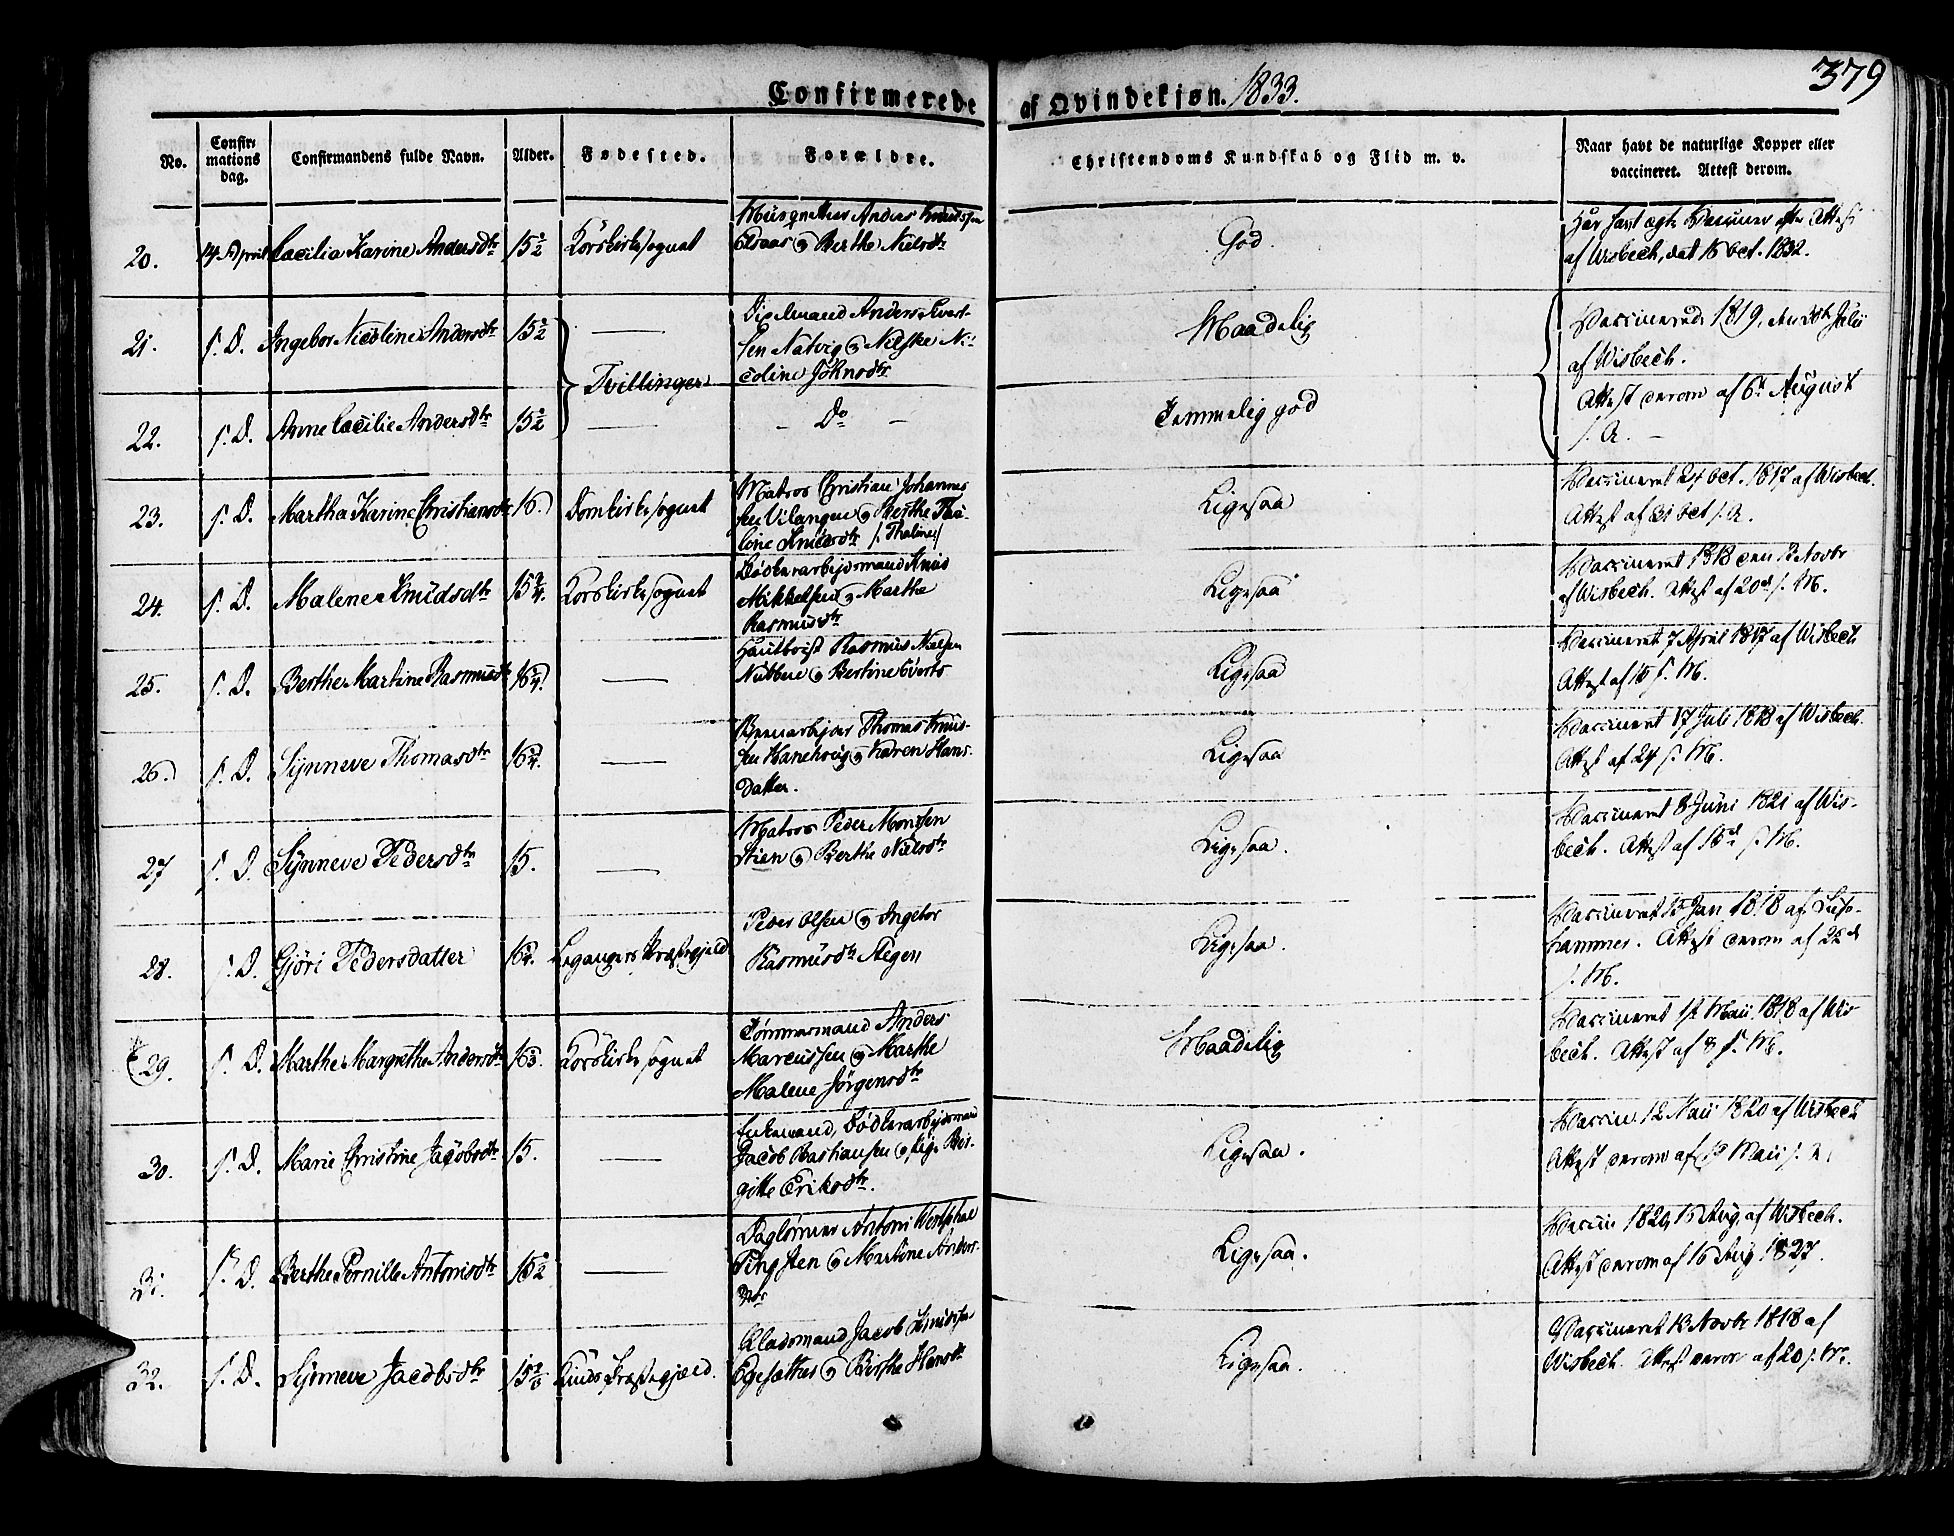 379
Confirmerede af Qvindekjøn. 1833.
No. Confirmations dag. Confirmandens fulde Navn. Alder. Fødested. Forældre. Christendoms Kundskab og Flid m. v. Naar havt de naturlige Kopper eller vaccineret. Attest derom.
20. 14 April Cæcilia Karine Andersdtr 15 1/2 Korskirkesognet
Anders Knudssen
Elsaas og Berthe Nielsdtr
God.
Attest
af Wisbech, dat 18 Oct. 1832.
21. s. D. Ingebor Nicoline Andersdtr 15 1/2 —
Anders Evert-
sen Natvig og Nilske Ni-
coline Johnsdtr.
Maadelig
Vaccinerede 1819, den Juli
af Wisbech.
Tvillinger
22. s. D. Anne Cæcilie Andersdtr 15 1/2 —
- Do -
Temmelig god
Attest derom af 6t August
s. A. -
23. s. D. Martha Karine Christiansdtr 16. Domkirkesognet
Matros Christian Johannes-
sen Vilangen og Berthe Tha-
lone Knudsdtr /: Thaline :/
Ligesaa
Vaccineret 24 Oct. 1817 af Wisbech.
Attest af 31 Oct s. A.
24. s. D. Malene Knudsdtr 15 3/4. Korskirkesognet
Bødkerarbeidsmand Knud
Mikkelsen og Marthe
Rasmusdtr
Ligesaa
Vaccineret 1818 den 13 Novbr
af Wisbech. Attest af 20de s. M.
25. s. D. Berthe Martine Rasmusdtr 16 3/4. —
Hautboist Rasmus Nielsen
og Bertine Everts
Ligesaa
Vaccineret 7 April 1817 af Wisbech
Attest af 18 s. M.
26. s. D. Synneve Thomasdtr 16 3/4. —
Thomas Knud-
sen og Karen Hans-
datter.
Ligesaa
Vaccineret 17 Juli 1818 af Wisbech.
Attest af 24 s. M.
27 s. D. Synneve Pedersdtr 15. —
Matros Peder Monssen
Stien og Berthe Nielsdtr
Ligesaa.
Vaccineret 8 Juni 1821 af Wis-
bech. Attest af 16de s. M.
28. s. D. Gjøri Pedersdatter 16 Leganger Præstegjeld
Peder Olsen og Ingebor
Rasmusdtr Stegen
Ligesaa.
Vaccineret Jan 1818 af
hammer. Attest derom af 22de
s. M.
29. s. D. Marthe Margrethe Andersdtr 16 Korskirkesognet
Tømmermand Anders
Marcussen og Marthe
Malene Jørgensdtr
Maadelig
Vaccineret 1st Maii 1818 af Wis
bech. Attest af 8 s. M.
30. s. D. Marie Christine Jacobsdtr 15. —
Enkemand, Bødkerarbeidsmand
Jacob Bastiansen og Bir-
gitte Eriksdtr.
Ligesaa.
Vaccin. 12 Maii 1820 af Wisbech
Attest derom af Maii s. A.
31. s. D. Berthe Pernille Antonisdtr 15 1/2 —
Antoni Westphal
Pingsten og Martine Anders-
dtr
Ligesaa.
Vaccin 1820, 15 Aug. af Wisbech.
Attest derom af 16 Aug 1827.
32. s. D. Synneve Jacobsdtr Kinds Præstegjeld.
Jacob Knudsen
Egesætter og Birthe Hansdtr
Ligesaa.
Vaccineret 13 Novbr 1818 af
Wisbech. Attest derom af 20 s. M.